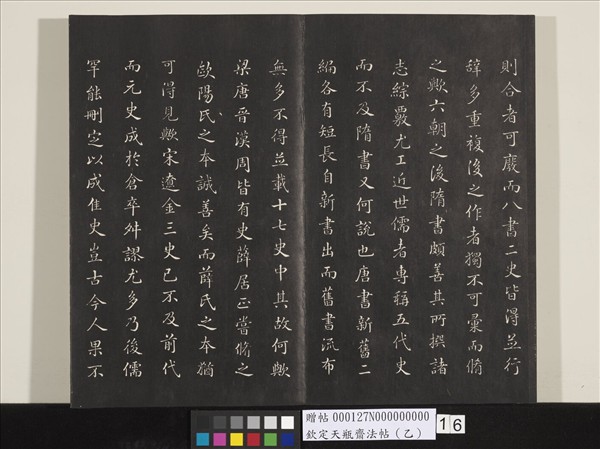 則合者可廢而八書二史皆得並行
辭多重複後之作者獨不可彙而脩
之歟六朝之後隋書頗善其所撰諸
志綜覈尤工近世儒者專稱五代史
而不及隋書又何說也唐書新舊二
編各有短長自新書出而舊書流布
無多不得並載十七史中其故何歟
梁唐晉漢周皆有史薛居正嘗脩之
歐陽氏之本誠善矣而薛氏之本猶
可得見歟宋遼金三史已不及前代
而元史成於倉卒舛謬尤多乃後儒
罕能刪定以成佳史豈古今人果不
贈帖 000127N000000000
欽定天瓶齋法帖（乙）
16